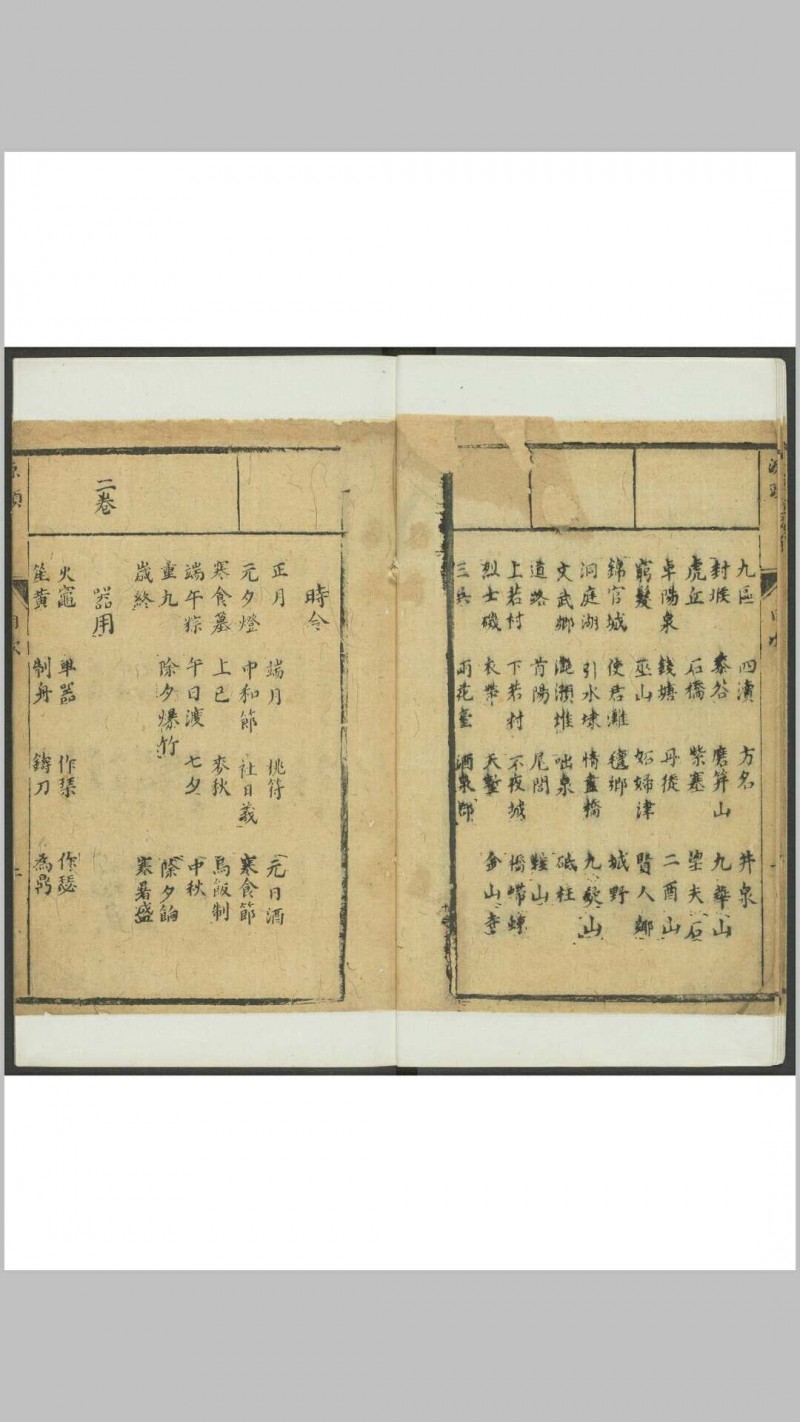 九區 四瀆 方名 井泉
封堠 泰谷 磨笄山 九華山
虎丘 石橋 紫塞 望夫石
卓陽泉 錢塘 丹徒 二酉山
窮髮 巫山 妬婦津 賢人鄉
錦官城 使君灘 穰鄉 城野
洞庭湖 引水埭 情盡橋 九嶷山
文武鄉 灔澦堆 咄泉 砥柱
道路 首陽 尾閭 山
上若村 下若村 不夜城
烈士磯 衣帶 天塹 金山寺
三兵 雨花臺 酒泉郡
時令
正月 端月 桃符 元日酒
元夕燈 中和節 社日 寒食節
寒食墓 上巳 麥秋 烏飯制
端午粽 午日渡 七夕 中秋
重九 除夕爆竹 除夕
歲終 寒暑盛
二卷
器用
火竈 單器 作琴 作瑟
笙黃 制舟 鑄刀 為鼎